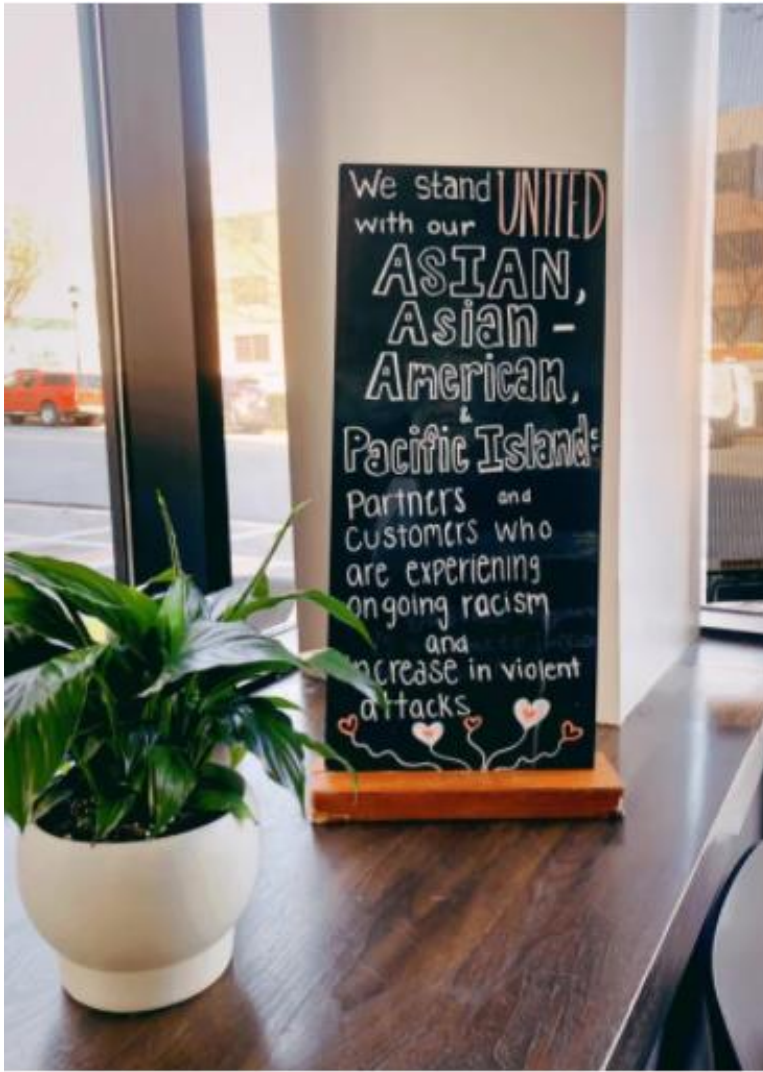 We stand UNITED
with our
ASIAN,
Asian -
American,
&
Pacific Islander
Partners and
customers who
are experiening
ongoing racism
and
increase in violent
attacks